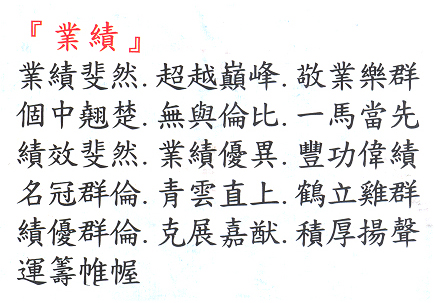 『業績』
業績斐然.超越巔峰.敬業樂群
個中翹楚.無與倫比.一馬當先
績效斐然.業績優異.豐功偉績
名冠群倫.青雲直上.鶴立雞群
績優群倫.克展嘉猷.積厚揚聲
運籌帷幄